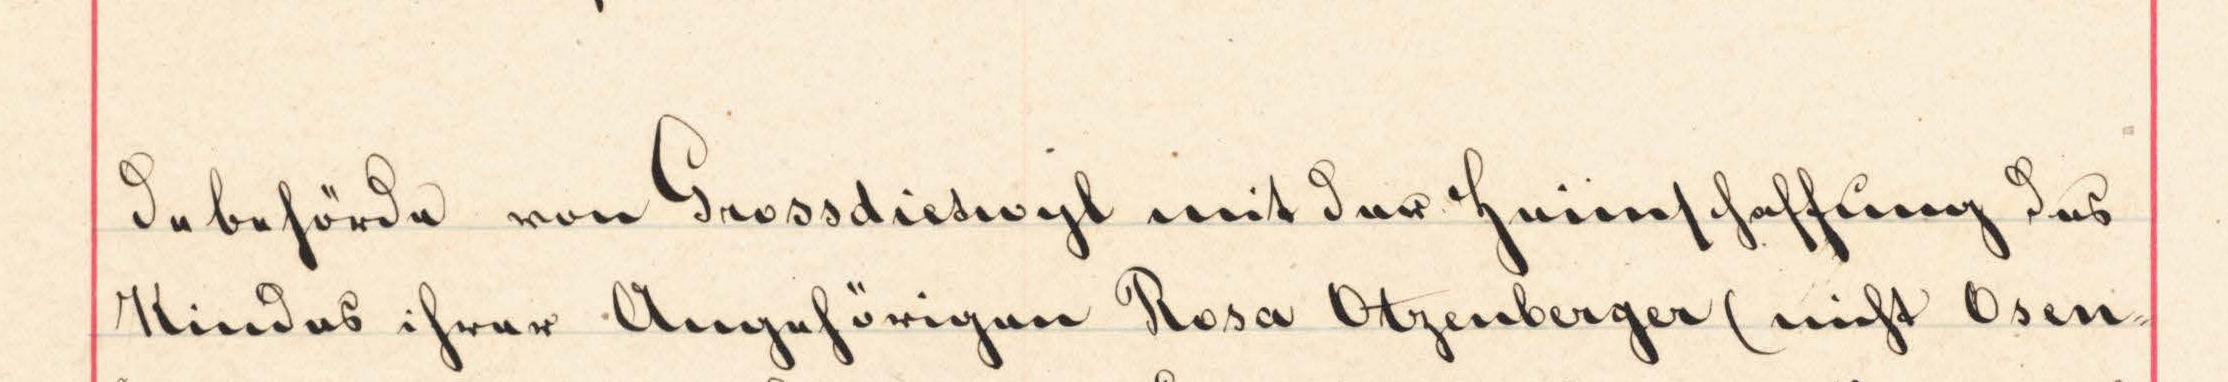 debehörde von Grossdietwyl mit der Heimschaffung des
Kindes ihrer Angehörigen Rosa Otzenberger (nicht Osen-